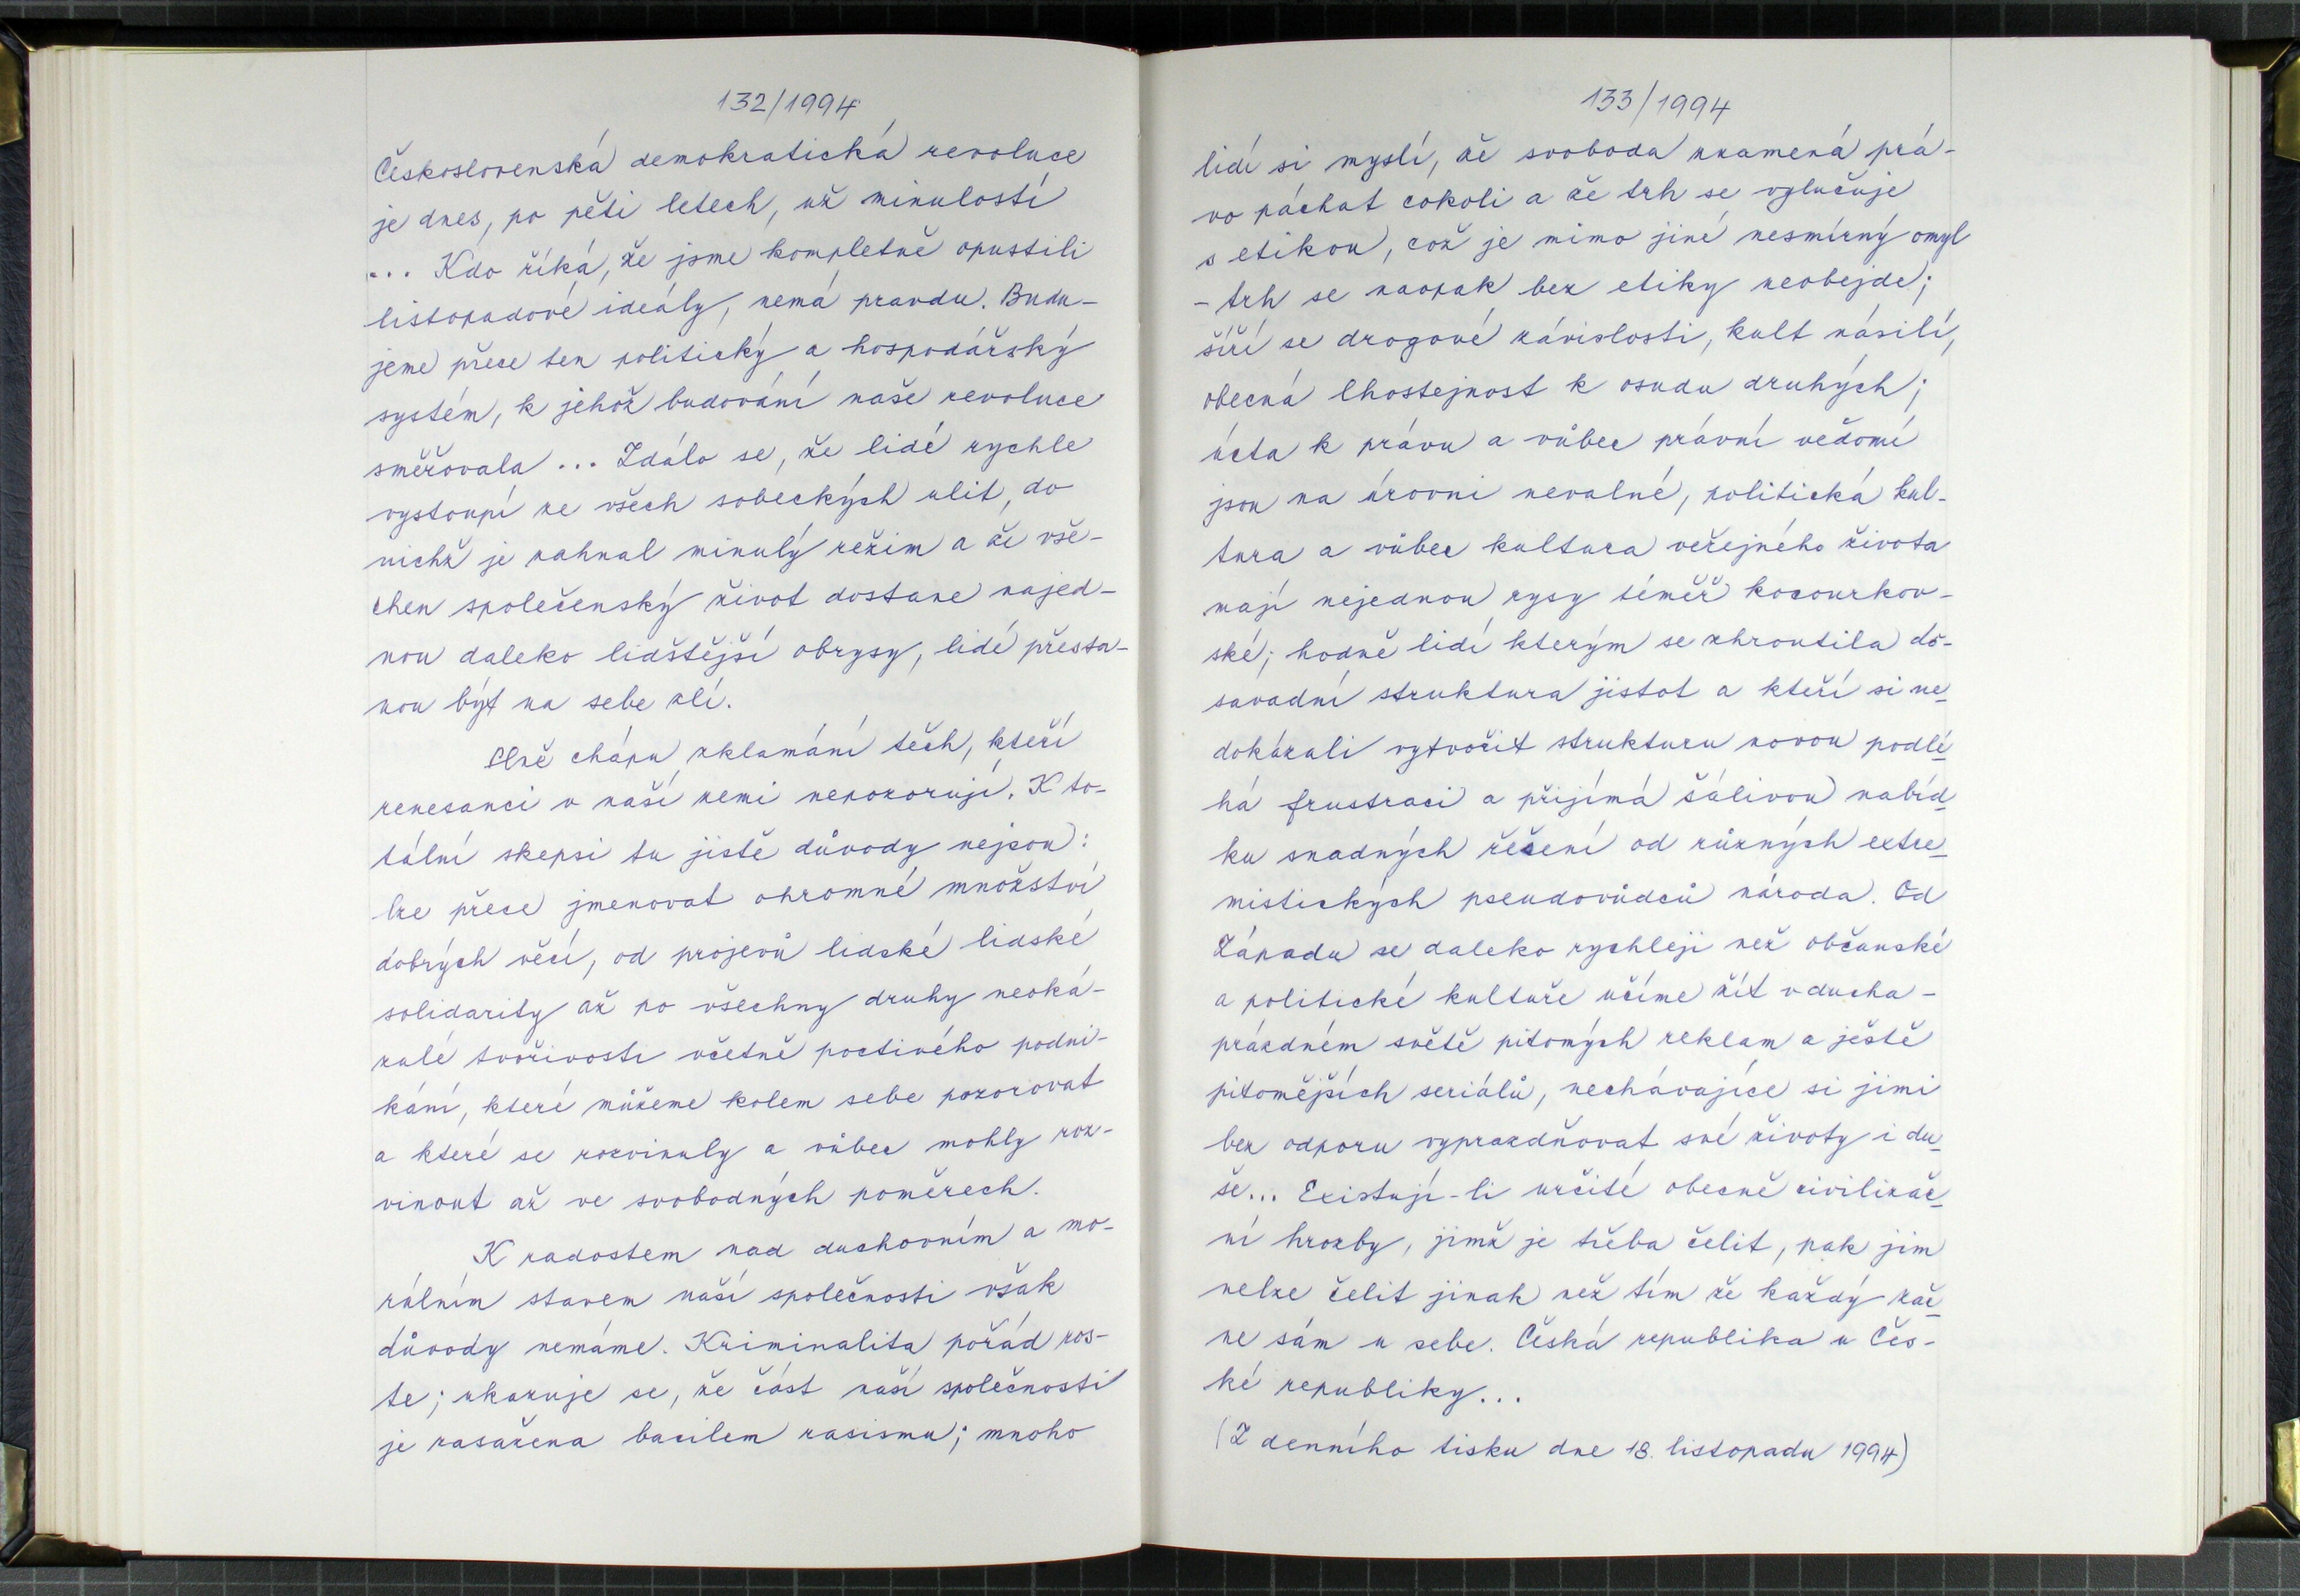 132/1994
Československá demokratická revoluce
je dnes, po pěti letech, už minulostí
... Kdo říká, že jsme kompletně opustili
listopadové ideály, nemá pravdu. Budu-
jeme přece ten politický a hospodářský
systém, k jehož budování naše revoluce
směřovala ... Zdálo se, že lidé rychle
vystoupí ze všech sobeckých ulit, do
nichž je zahnal minulý režim a že vše-
chen společenský život dostane najed-
nou daleko lidštější obrysy, lidé přesta-
nou být na sebe zlí.
Plně chápu zklamání těch, kteří
renesanci v naší zemi nepozorují. K to-
tální skepsi tu jistě důvody nejsou:
lze přece jmenovat ohromné množství
dobrých věcí, od projevů lidské lidské
solidarity až po všechny druhy neoká-
zalé tvořivosti včetně poctivého podni-
kání, které můžeme kolem sebe pozorovat
a které se rozvinuly a vůbec mohly roz-
vinout až ve svobodných poměrech.
K radostem nad duchovním a mo-
rálním stavem naší společnosti však
důvody nemáme. Kriminalita pořád ros-
te; ukazuje se, že část naší společnosti
je zasažena bacilem rasismu; mnoho
133/1994
lidí si myslí, že svoboda znamená prá-
vo páchat cokoli a že trh se vylučuje
s etikou, což je mimo jiné nesmírný omyl
- trh se naopak bez etiky neobejde;
šíří se drogové závislosti, kult násilí,
obecná lhostejnost k osudu druhých;
úcta k právu a vůbec právní vědomí
jsou na úrovni nevalné, politická kul-
tura a vůbec kultura veřejného života
mají nejednou rysy téměř kocourkov-
ské; hodně lidí kterým se zhroutila do-
savadní struktura jistot a kteří si ne-
dokázali vytvořit strukturu novou podlé-
há frustraci a přijímá šálivou nabíd-
ku snadných řešení od různých extre-
mistických pseudovůdců národa. Od
Západu se daleko rychleji než občanské
a politické kultuře učíme žít v ducha-
prázdném světě pitomých reklam a ještě
pitomějších seriálů, nechávajíce si jimi
bez odporu vyprazdňovat své životy i du-
še... Existují-li určité obecně civilizač-
ní hrozby, jimž je třeba čelit, pak jim
nelze čelit jinak než tím že každý zač-
ne sám u sebe. Česká republika u Čes-
ké republiky...
(Z denního tisku dne 18. listopadu 1994)